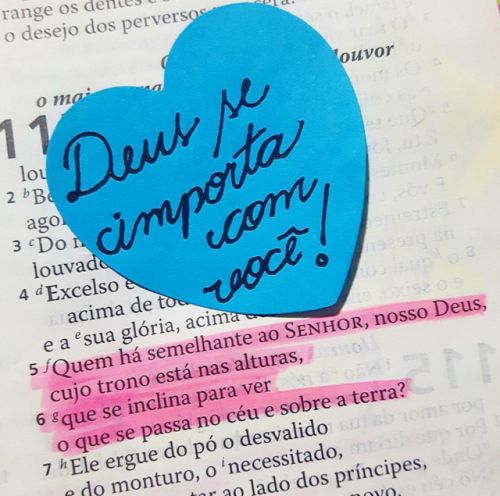 range os dentes e
o desejo dos perversos
louvor
o mai
11
Deus se
importa
com
você!
lou
2 b Be
ago
3 c Do
louvado
4 d Excelso é
acima de
e a e sua glória, acima
5 f Quem há semelhante ao SENHOR, nosso Deus,
cujo trono está nas alturas,
6 g que se inclina para ver
o que se passa no céu e sobre a terra?
7 h Ele ergue do pó o desvalido
e do monturo, o i necessitado,
ao lado dos príncipes,